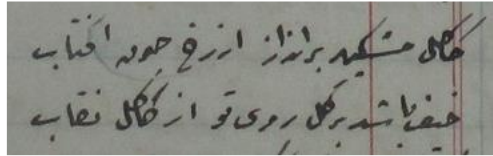 کاکل مشکین برانداز از رخ چون افتاب
حیف باشد بر گل روی تو از کاکل نقاب